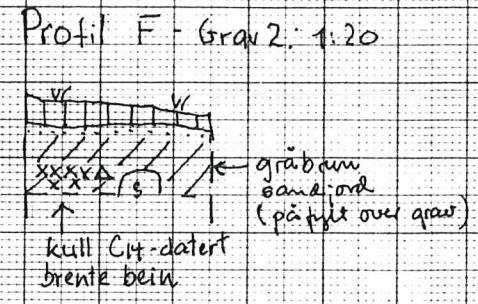 Profil F - Grav 2. 1:20
gråbrun
sandjord
(påfylt over grav)
S
kull C14-datert
brente bein